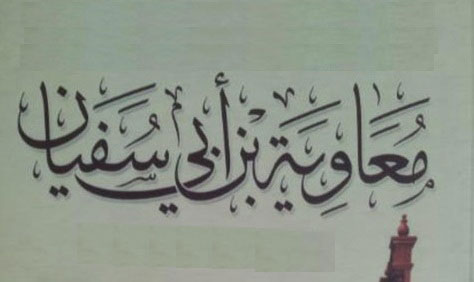 مُعَاوِيَة بْن أَبِي سُفْيَان